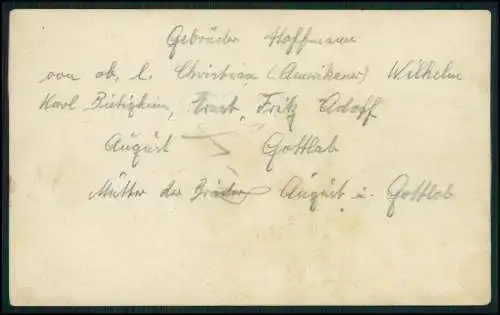 Gebrüder Hoffmann
von ob. l. Christian (Amerikaner) Wilhelm
Karl Bietigheim, Ernst, Fritz Adolf
August Gottlob
Mutter der Brüder August u. Gottlob